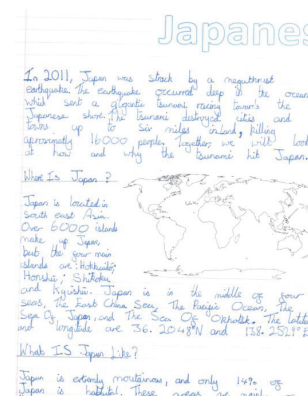 Japanes
In 2011, Japan was struck by a megathrust
earthquake. The earthquake occurred deep in the ocean
which sent a gigantic tsunami racing towards the
Japanese shore. The tsunami destroyed cities and
towns up to six miles inland, killing
aproximatly 16000 people. Together we will look
at how and why the tsunami hit Japan.
What Is Japan?
Japan is located in
South east Asia.
Over 6000 islands
make up Japan,
but the four main
islands are: Hokkaido,
Honshu, Shikoku
and Kyushu. Japan is in the middle of four
seas, The East China Sea, The Pacific Ocean, The
Sea Of Japan, and The Sea Of Okhotsk. The latitude
and longitude are 36. 2048°N and 138. 2529°E
Whats IS Japan Like?
Japan is extremly mountainous, and only 14% of
Japan is habitul. These areas are